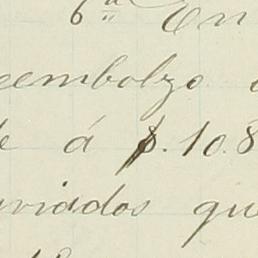 6ª En
eembolzo
e á $.108
uviados qu